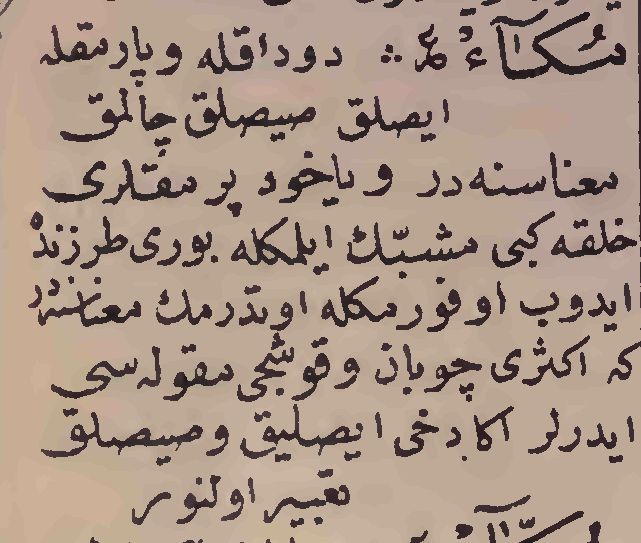 مُكَآءٌ دوداقله و پارمقله
ايصلق صيصلق چالمق
معناسنه در و ياخود پرمقلرى
خلقه كبى مشبّك ايلمكله بورى طرزنده
ايدوب اوفورمكله اوتدرمك معناسنه در
كه اكثرى چوبان و قوشجى مقوله سى
ايدرلر اكا دخى ايصليق و صيصلق
تعبير اولنور